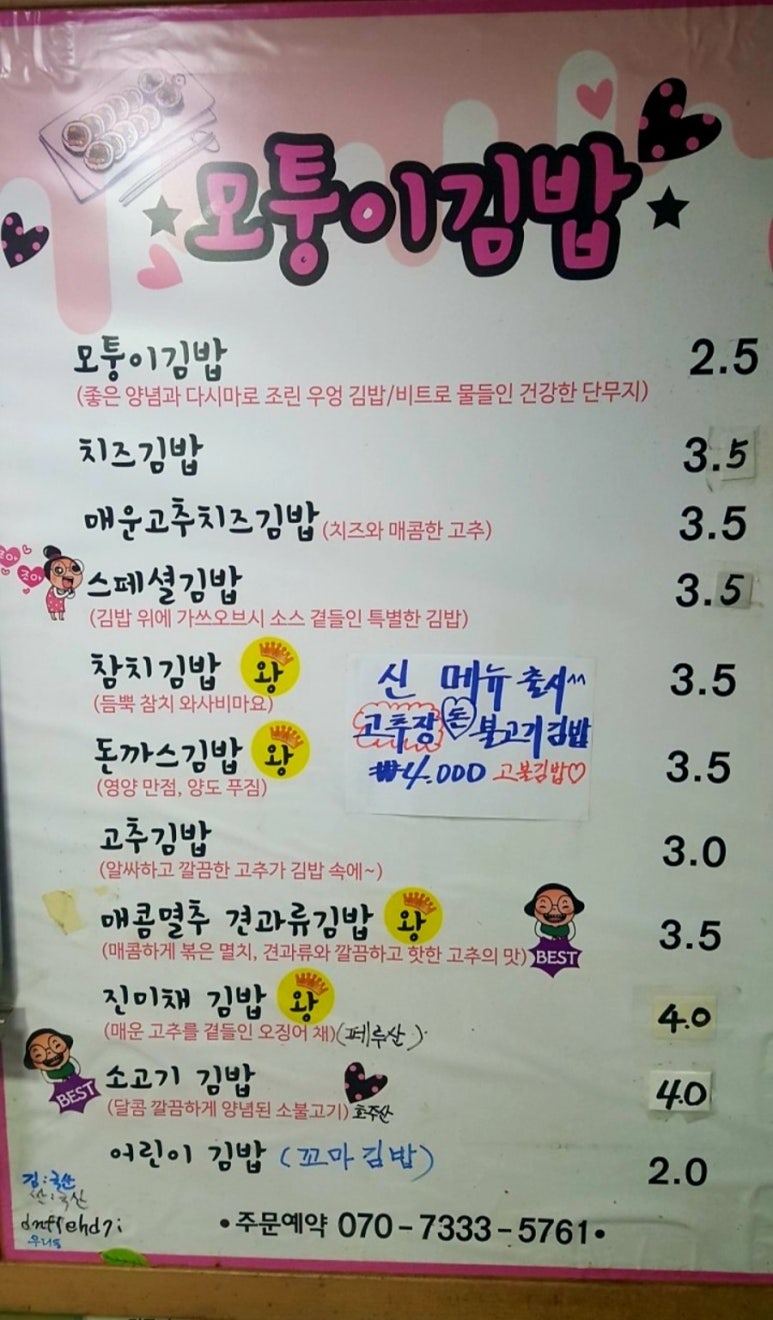 모퉁이김밥
모퉁이김밥 2.5
(좋은 양념과 다시마로 조린 우엉 김밥/비트로 물들인 건강한 단무지)
치즈김밥 3.5
매운고추치즈김밥 (치즈와 매콤한 고추) 3.5
조아
스페셜김밥 3.5
(김밥 위에 가쓰오브시 소스 곁들인 특별한 김밥)
참치김밥 왕 3.5
(듬뿍 참치 와사비마요)
신 메뉴 출시^^
고추장 돈 불고기김밥
₩4.000 고불김밥♡
돈까스김밥 왕 3.5
(영양 만점, 양도 푸짐)
고추김밥 3.0
(알싸하고 깔끔한 고추가 김밥 속에~)
매콤멸추 견과류김밥 왕 3.5
(매콤하게 볶은 멸치, 견과류와 깔끔하고 핫한 고추의 맛) BEST
진미채 김밥 왕 4.0
(매운 고추를 곁들인 오징어 채) (페루산)
BEST 소고기 김밥 4.0
(달콤 깔끔하게 양념된 소불고기) 호주산
어린이 김밥 (꼬마김밥) 2.0
김:국산
쌀:국산
•주문예약 070-7333-5761•